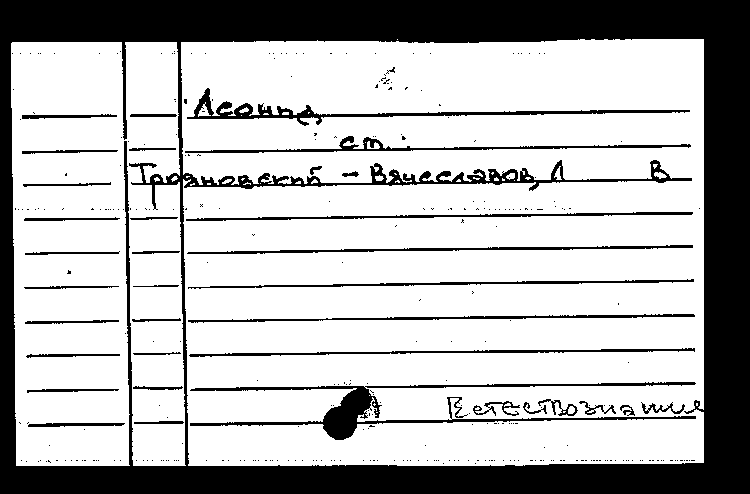 Леонид
ст.:
Трояновский - Вячеславов, Л В
Естествознание